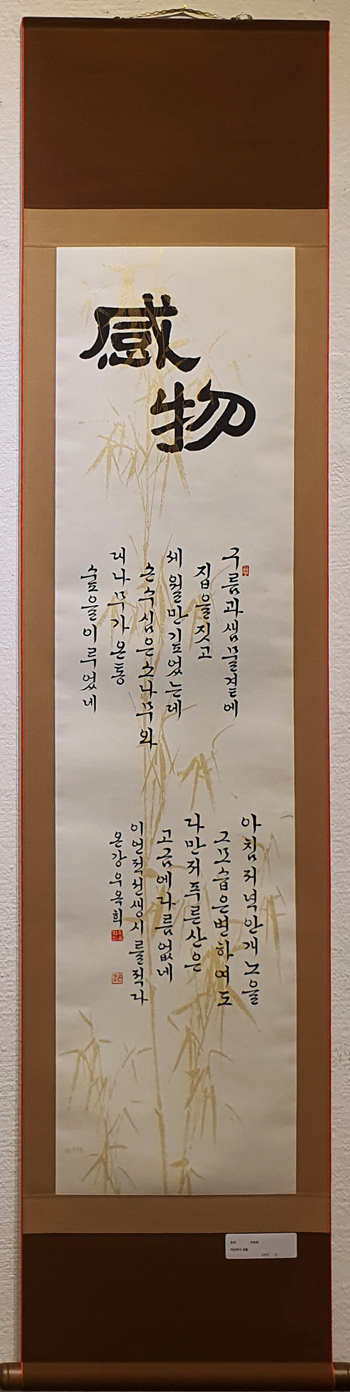 感物
구름과샘물곁에
집을짓고
세월만깊었는데
손수심은소나무와
대나무가온통
숲을이루었네
아침저녁안개노을
그모습은변하여도
다만저푸른산은
고금에다름없네
이언적선생시를적다
온강우옥희